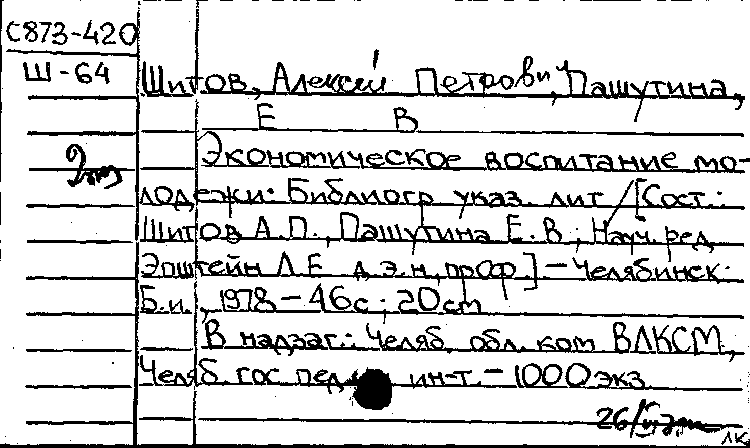 С873-420
Ш-64
Шитов, Алексей Петрович, Пашутина,
Е В
Экономическое воспитание мо-
лодежи: Библиогр указ. лит / [Сост.:
Шитов А.П., Пашутина Е.В.; Науч. ред.
Эпштейн Л.Е д.э.н, проф.] – Челябинск:
Б.и., 1978 – 46с; 20cm
В надзаг.: Челяб. обл. ком ВЛКСМ,
Челяб. гос пед. ин-т. – 1000 экз.
26/
ЛК